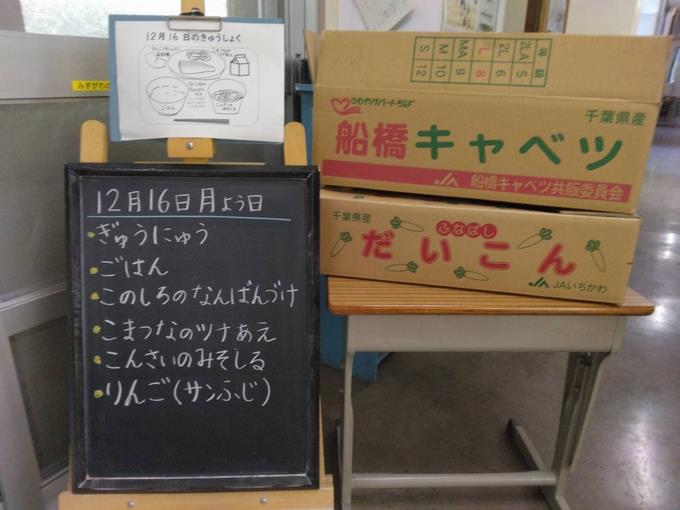 12月16日のきゅうしょく
ごはん
みぎがわ
12月16日月よう日
・ぎゅうにゅう
・ごはん
・このしろのなんばんづけ
・こまつなのツナあえ
・こんさいのみそしる
・りんご(サンふじ)
等級 2LA 2L L MA M S
5 6 8 9 10 12
千葉県産
船橋キャベツ
JA 船橋キャベツ共販委員会
千葉県産
ふなばし
だいこん
JAいちかわ